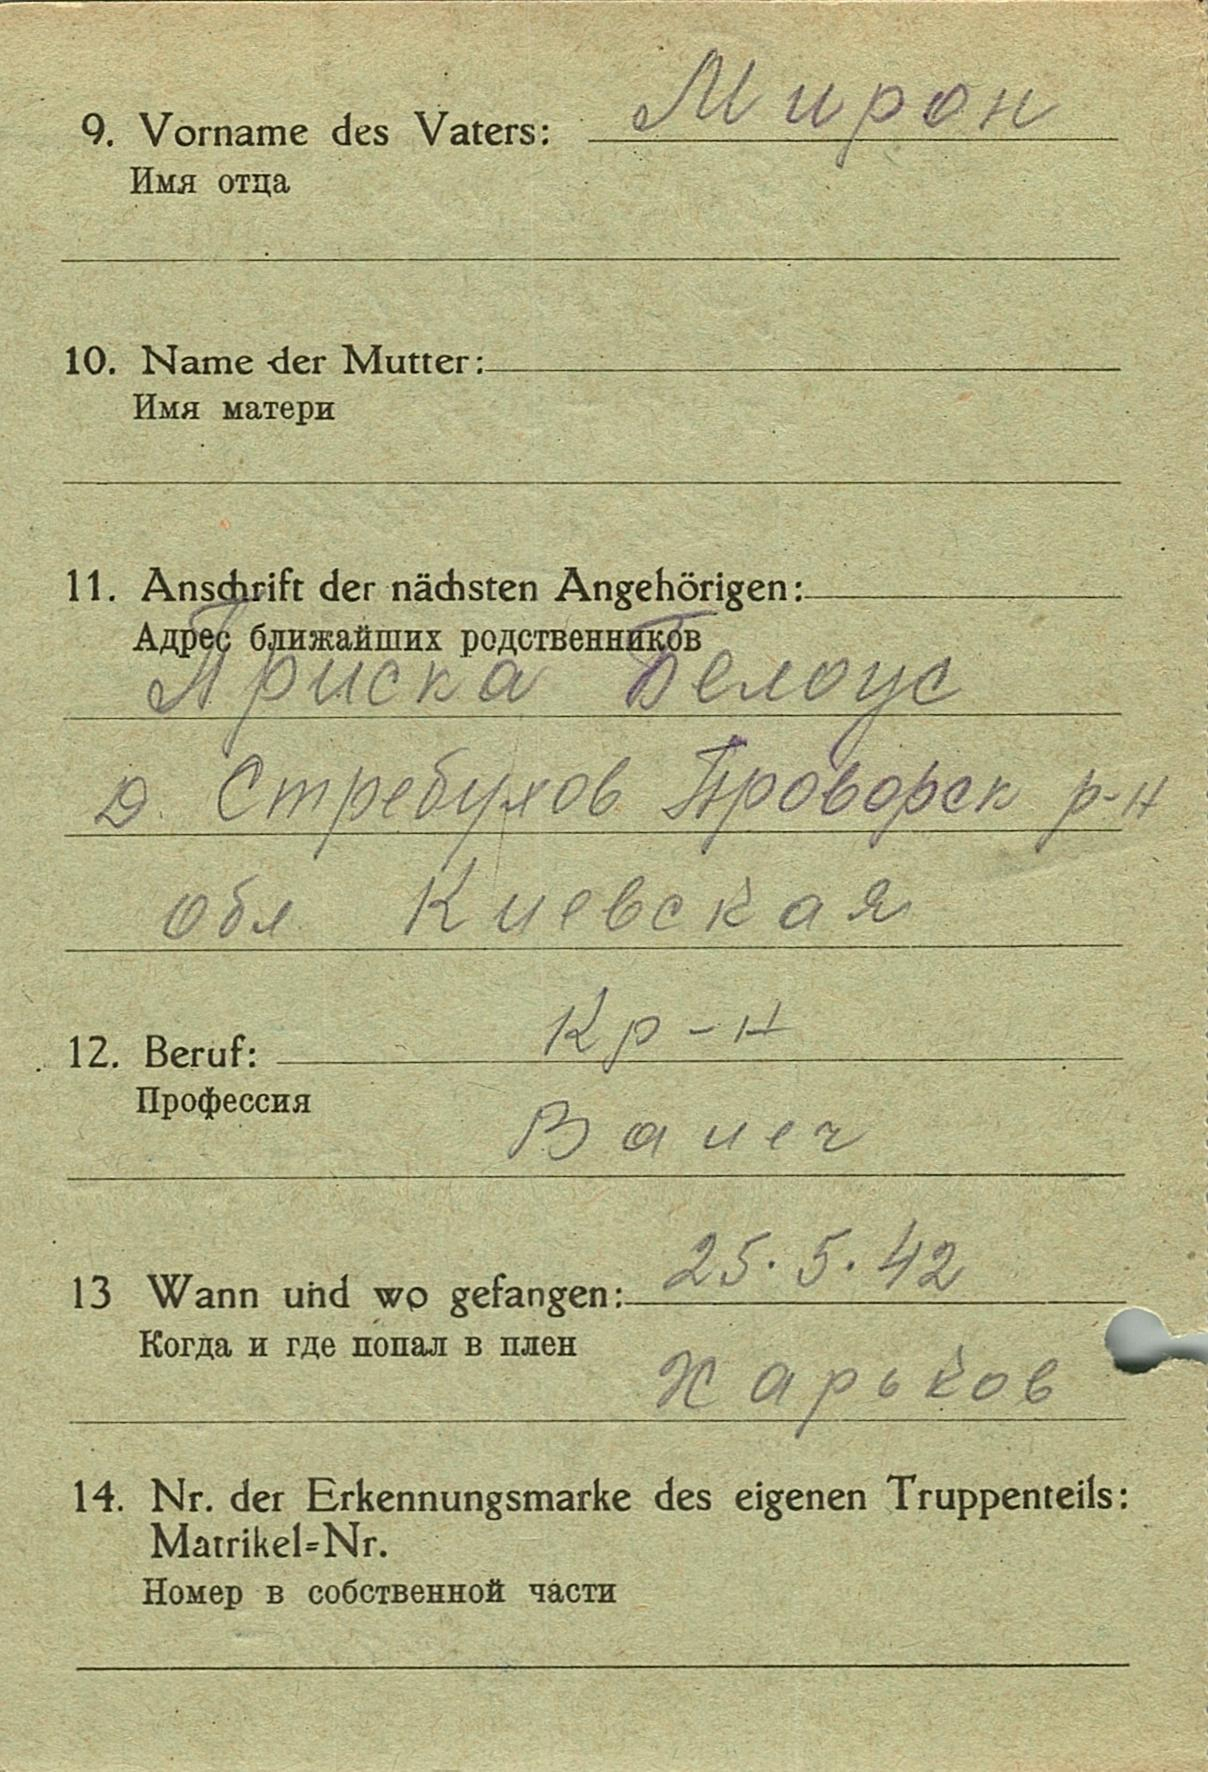 9. Vorname des Vaters: Мирон
Имя отца
10. Name der Mutter:
Имя матери
11. Anschrift der nächsten Angehörigen:
Адрес ближайших родственников
Приска Белоус
д. Стребухов Проворск р-н
обл Киевская
12. Beruf: Кр-н
Профессия
13 Wann und wo gefangen: 25.5.42
Когда и где попал в плен
Харьков
14. Nr. der Erkennungsmarke des eigenen Truppenteils:
Matrikel=Nr.
Номер в собственной части